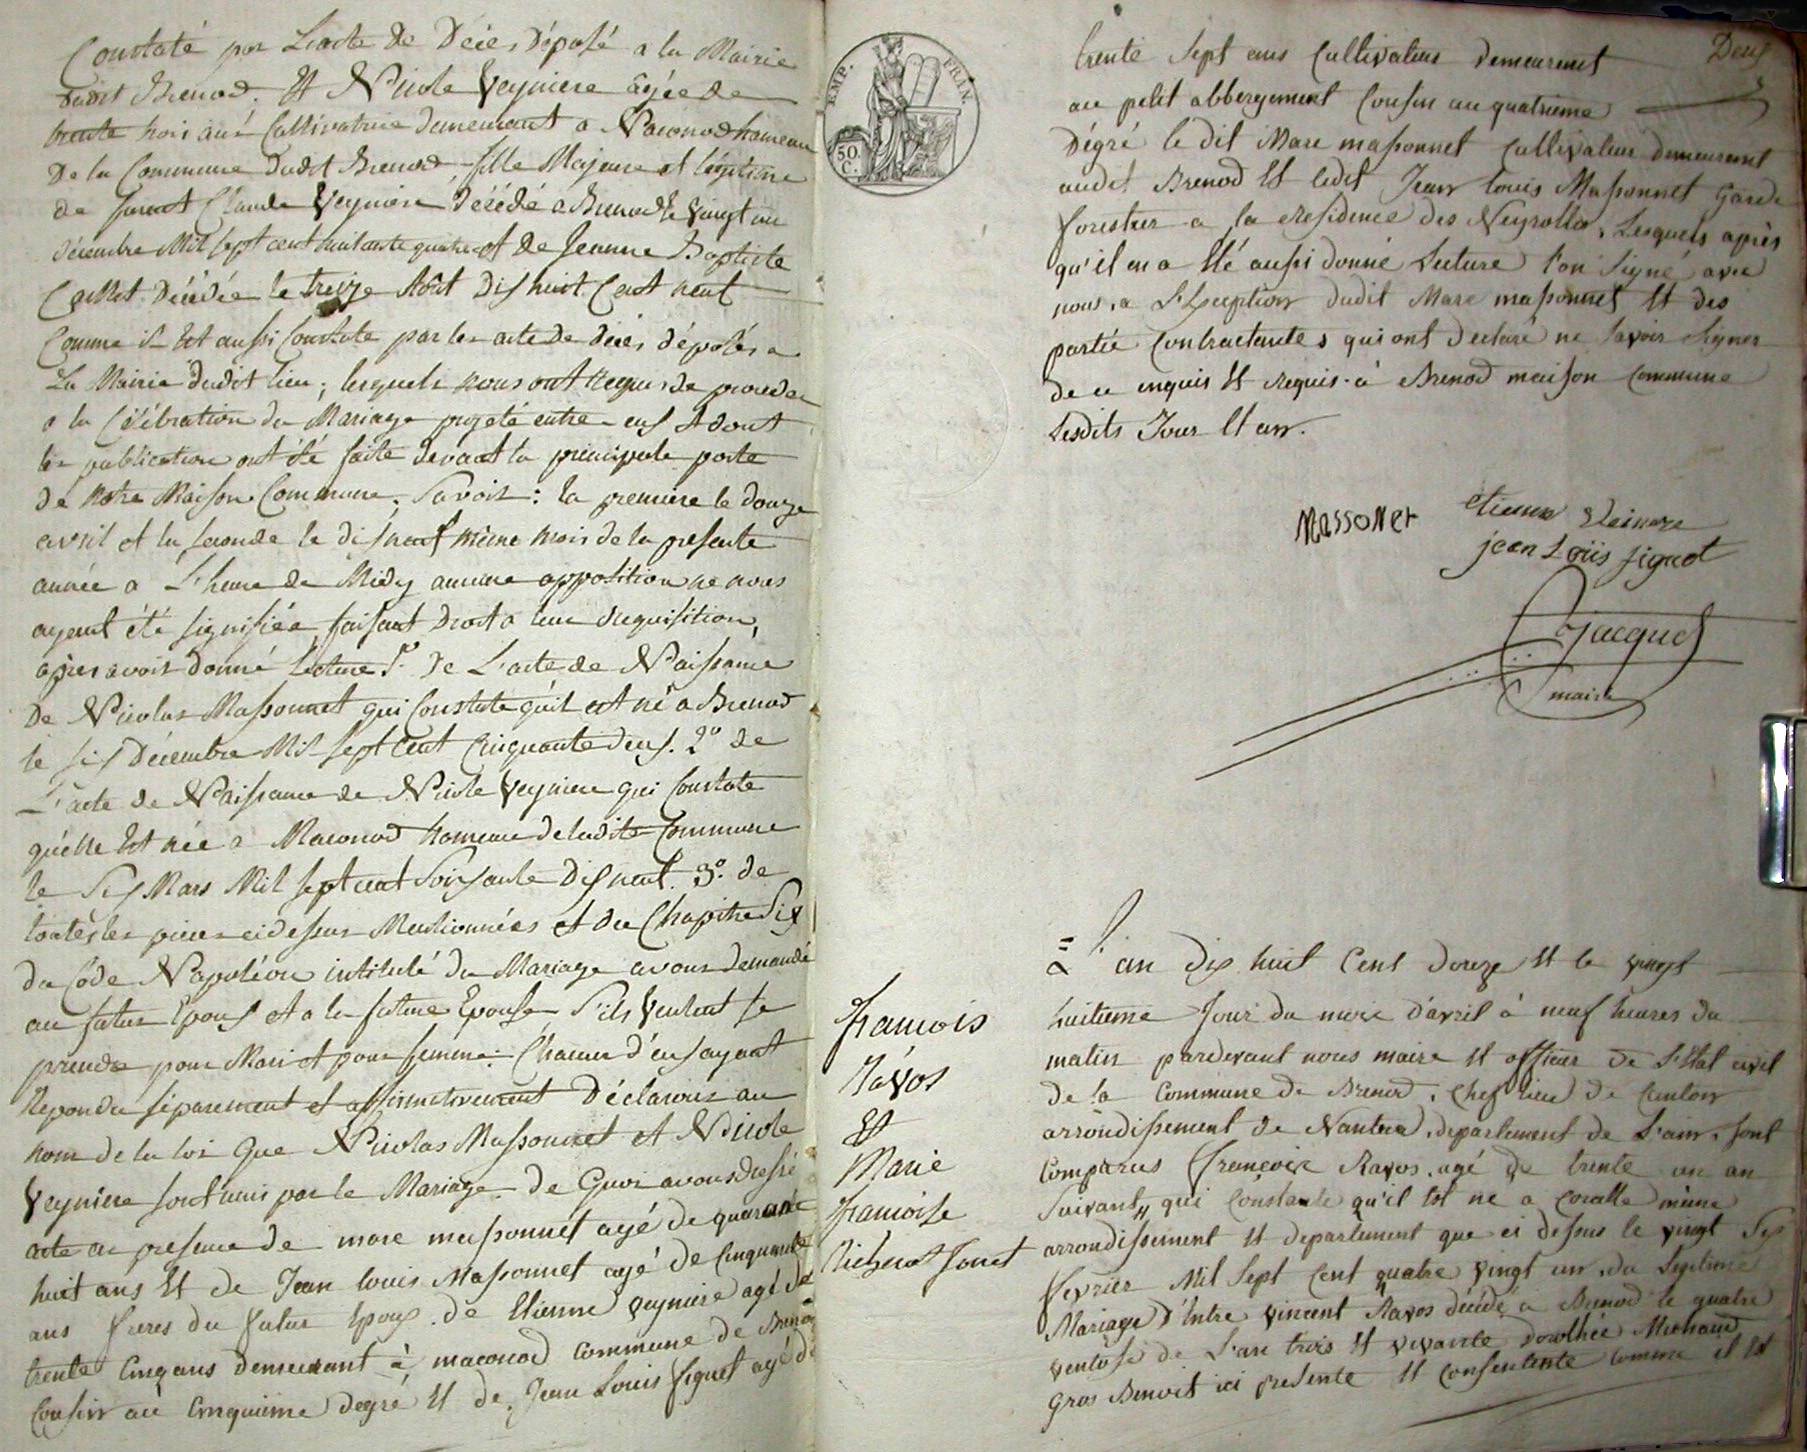 Constaté par L'acte de Décès Déposé a la Mairie
dudit Brenod. Et Nicole Veyniere âgée de
trente trois ans Cultivatrice demeurant a Maconod hameau
De la Commune Dudit Brenod, fille Majeure et légitime
de feu Claude Veyniere Décédé a Brenod le Vingt un
décembre Mil sept cent huitante quatre et de Jeanne Baptiste
Décédée le treize Aôut Dix huit Cent neuf
Comme il Est aussi Constaté par les acte de décès déposés a
La Mairie dudit lieu; lesquels nous ont requis de proceder
a la Célébration du Mariage projeté entre eux et dont
les publication ont été faite devant la principale porte
de notre Maison Commune. Savoir: la premiere le douze
avril et la seconde le dix neuf même mois de la presente
année a L'heure de Midy aucune opposition ne nous
ayant été signifiée, faisant Droit a leur requisition,
après avoir donné lecture 1° de L'acte de Naissance
De Nicolas Massonnet qui Constate qu'il est né a Brenod
le six Décembre Mil sept Cent Cinquante deux. 2° de
L'acte de Naissance de Nicole Veyniere qui Constate
qu'elle Est née a Maconod hameau de ladite Commune
le Six Mars Mil sept cent Soixante Dix neuf. 3° de
toutes les pieces ci dessus Mentionnées et du Chapitre Six
du Code Napoléon intitulé du Mariage avons demandé
au futur Epoux et a la future Epouse S'ils Veulent se
prendre pour Mari et pour femme: Chacun d'eux ayant
Repondu séparement et affirmativement Déclarons au
nom de la loi que Nicolas Massonnet et Nicole
Veyniere sont unis par le Mariage. De Quoi avons dressé
acte en presence de marc massonnet agé de quarante
huit ans Et de Jean louis Massonnet agé de Cinquante
ans freres du futur Epoux. de Etienne Veyniere agé de
trente Cinq ans demeurant à maconod commune de Brenod
Cousin au Cinquieme degré Et de Jean Louis Figuet agé de
EMP. FRAN.
50. C.
Deux
trente Sept ans Cultivateur demeurant
au petit abbergement Cousin au quatrieme
Dégré le dit Marc massonnet Cultivateur demeurant
audit Brenod Et ledit Jean louis Massonnet Garde
forestier a la residence des Neyrolles, Lesquels après
qu'il en a Eté aussi donné Lecture l'on Signé avec
nous, a L'Exception dudit Marc massonnet Et des
partie Contractantes qui ont déclaré ne Savoir Signer
de ce enquis Et requis. à Brenod maison Commune
Lesdits Jour Et an.
Massonet
etienne Veinere
jean Loüis figuet
Jacquet
maire
francois
Ravos
Et
Marie
francoise
L'an dix huit Cent douze Et le vingt
huitieme Jour du mois d'avril à neuf heures du
matin pardevant nous maire Et officier de L'Etat civil
de la Commune de Brenod, Chef lieu de Canton
arrondissement de Nantua, departement de L'ain, sont
Comparus francois Ravos, agé de trente un an
Suivant qui Constate qu'il Est né a Coralle même
arrondissement Et departement que ci dessus le vingt Six
fevrier Mil Sept Cent quatre vingt un, du legitime
Mariage d'Entre vincent Ravos décédé a Brenod le quatre
ventose de L'an trois Et vivante Dorothée Michaud
Gros Benoit ici presente Et Consentente comme il Est